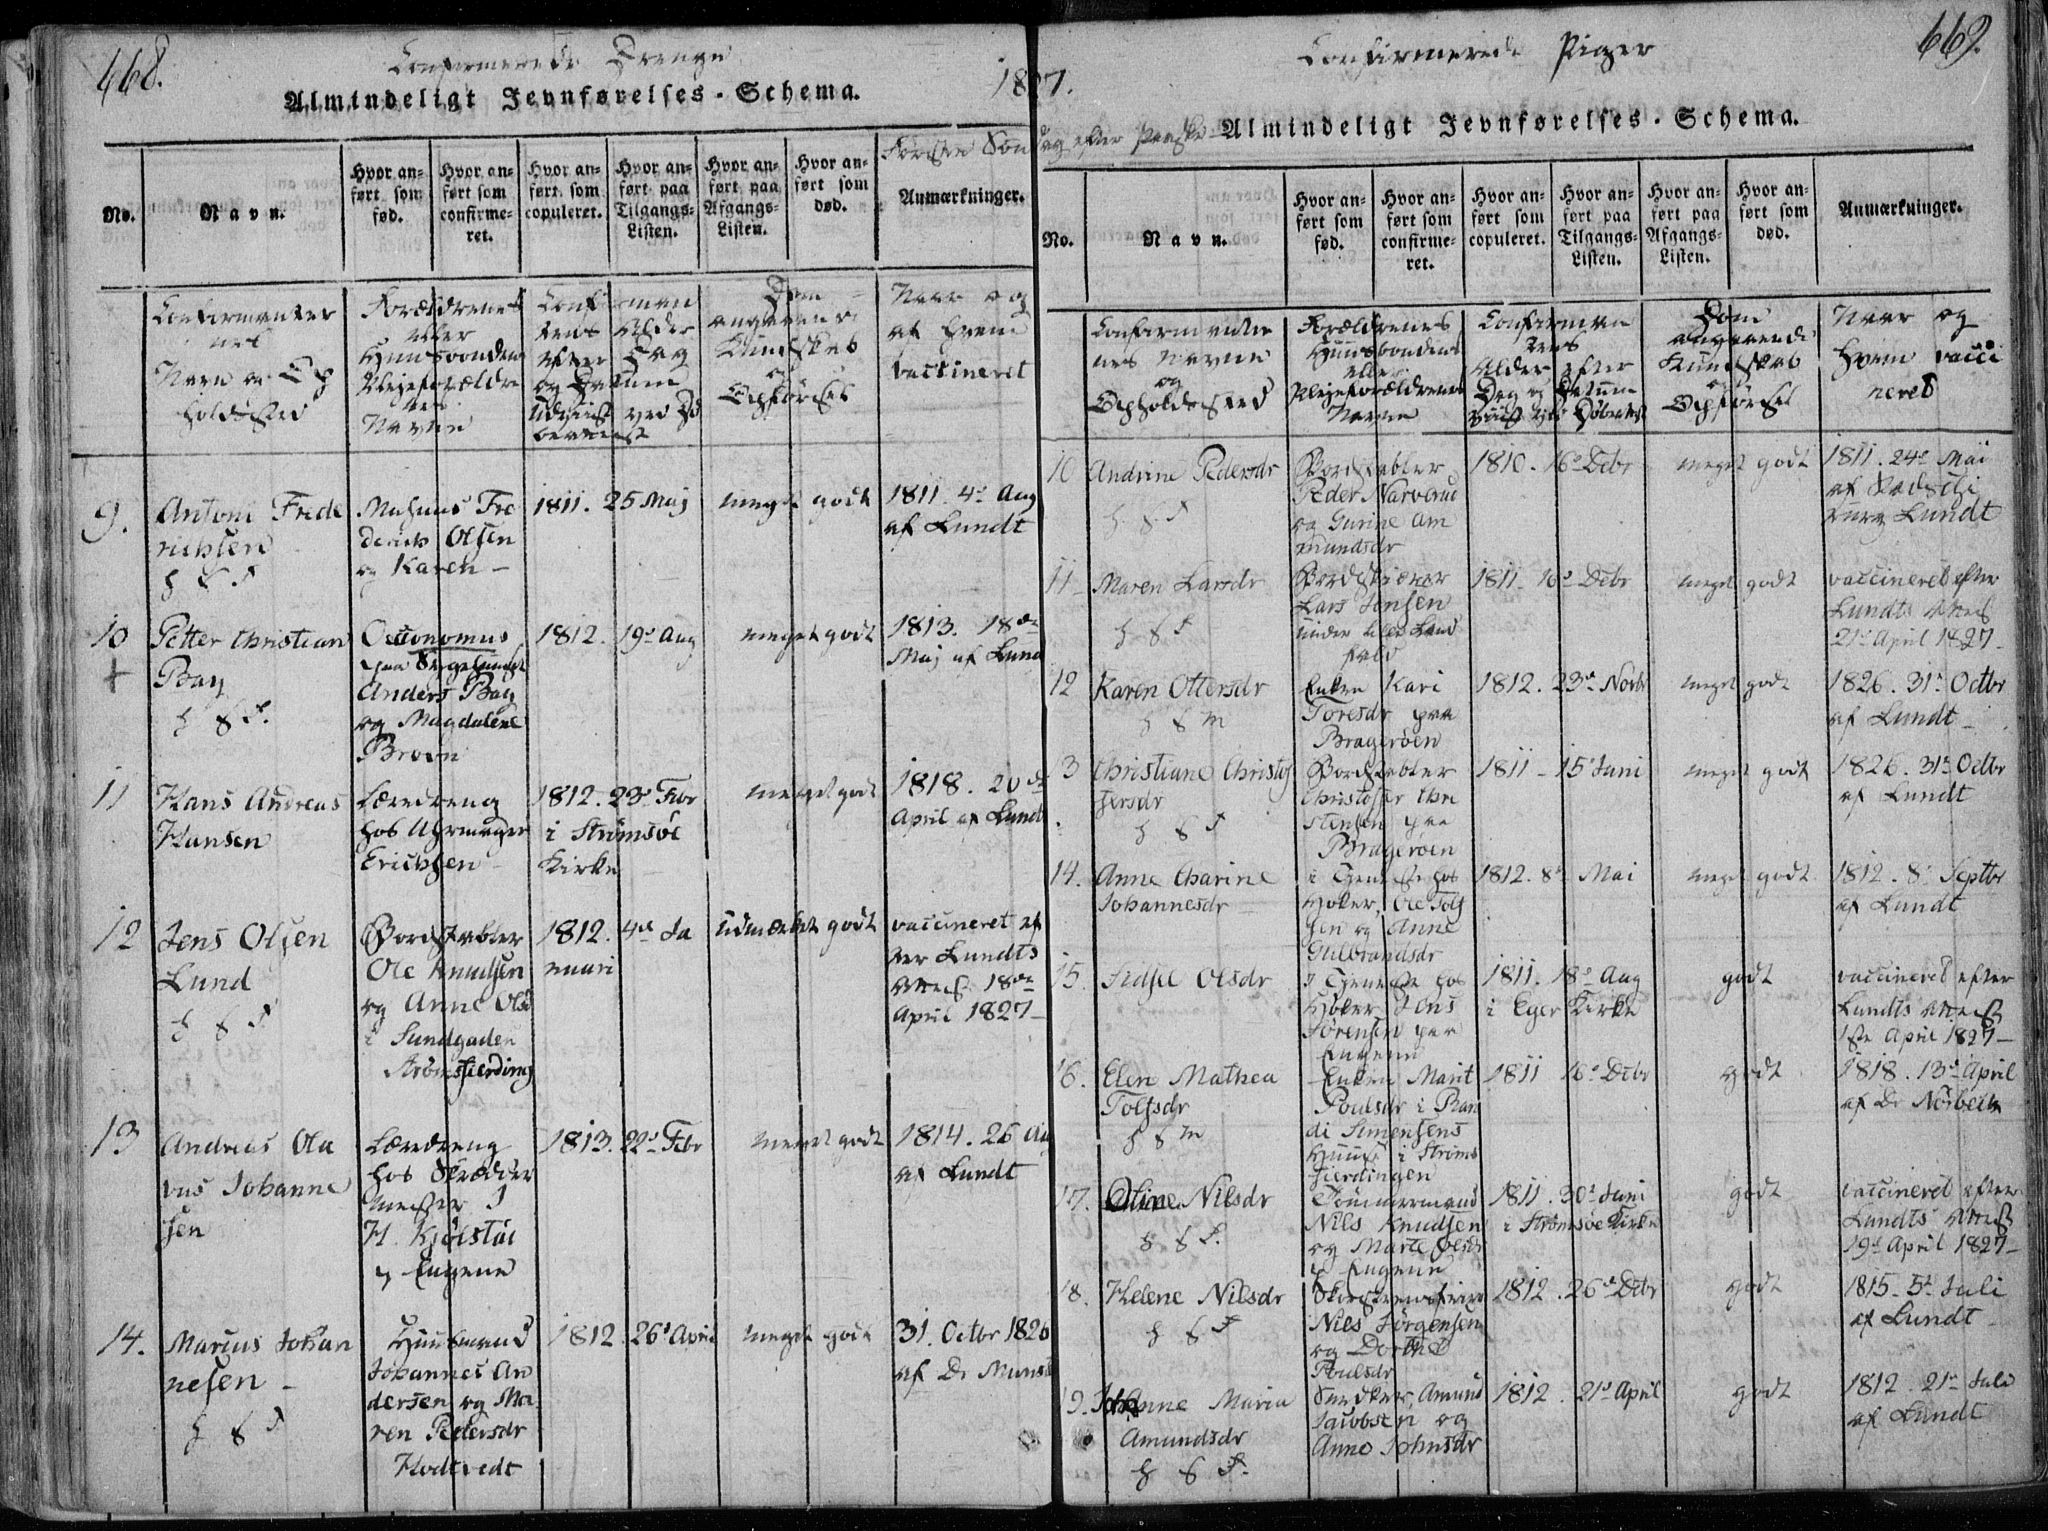 468.
Confirmerede Drenge
Almindeligt Jevnførelses-Schema.
1827.
Første Søndag efter Paaske
No.
Navn.
Hvor anført som fød.
Hvor anført som confirmeret.
Hvor anført som copuleret.
Hvor anført paa Tilgangs-Listen.
Hvor anført paa Afgangs-Listen.
Hvor anført som død.
Anmærkninger.
Confirmanter
nes
Navn og Op
holdssted
Forældrenes
eller
Huusbondens
Pleieforældre
nes
Navne
Confirman
tens Alder
efter Dag
og Datum
Udviist ved Dø
beattest
Dom
angaaende
Kundskab
og
Opførsel
Naar og
af hvem
vaccineret
9.
Antoni Frede
richsen
h f S
Mashuus Fre
derich Olsen
og Karen
1811. 25 Maj
meget godt
1811. 4de Aug
af Lundt
10
+
Petter Christian
Bay
h f S.
Oeconomus
paa Sygehuuset
Anders Bay
og Magdalene
Brown
1812. 19de Aug
meget godt
1813. 18de
Maj af Lund
11
Hans Andreas
Hansen
Læredreng
hos Uhrmager
Erichsen
1812. 23de Febr
i Strømsøe
Kirke
meget godt
1818. 20de
April af Lund
12
Jens Olsen
Lund
h f S
Bordstabler
Ole Knudsen
og Anne Olsd
i Sundgaden
Strømsfierding
1812. 4de Ja
nuari
Udmærket godt
vaccineret ef
ter Lundts
Attest 18de
April 1827
13
Andreas Ola
vus Johanne
sen
Læredreng
hos Skrædder
Mester J
H. Kjölstai
p Engene
1813. 22de Febr
meget godt
1814. 26 Au
af Lundt
14.
Marius Johan
nesen
h f S
Huusmand
Johannes An
dersen og Ma
ren Pedersdr
Hodtvedt
1812. 26de April
meget godt
31. Octbr 1826
af Dr Muns
669.
Confirmerede Piger
Almindeligt Jevnførelses-Schema.
No.
Navn.
Hvor anført som fød.
Hvor anført som confirmeret.
Hvor anført som copuleret.
Hvor anført paa Tilgangs-Listen.
Hvor anført paa Afgangs-Listen.
Hvor anført som død.
Anmærkninger.
Confirmanter
nes Navne
og
Opholdssted
Forældrenes
Huusbondens
eller
Pleieforældrenes
Navne
Confirman
tens
Alder efter
Dag og Datum
viist ved Døbeattest
Dom
angaaende
Kundskab
og
Opførsel
Naar og
hvem vacci
neret
10
Andrine Pedersdr
h f S
Bordstabler
Peder Narverud
og Gurine Am
mundsdr
1810. 16de Debr
meget godt
1811. 24de Mai
af
Lundt
11
Maren Larsdr
h f S
Bordskierer
Lars Jensen
under
1811. 16de Debr
meget godt
vaccineret efter
Lundts Attest
21de April 1827
12
Karen Ottersdr
h f m
Enken Kari
Toresdr paa
Bragerøen
1812. 23de Novbr
meget godt
1826. 31te Octbr
af Lundt
13
Christiane Christof
fersdr
h f S
Bordstabler
Christoffer Chri
stensen paa
Bragerøen
1811 - 15de Juni
meget godt
1826. 31te Octbr
af Lundt
14.
Anne Charine
Johannesdr
i Tjeneste hos
Høker, Ole Tolf
sen og Anne
Gulbrandsdr
1812. 8de Mai
meget godt
1812. 8de Septbr
af Lundt
15.
Sidsel Olsdr
I Tjeneste hos
Høker Jens
Sørensen paa
Engene
1811. 18de Aug
i Eger Kirke
godt
vaccineret efter
Lundts Attest
1ste April 1827
16.
Elen Mathea
Tolfsdr
h f m
Enken Marit
Poulsdr i Ran
di Simensens
Huus i Strøms
fierdingen
1811 16de Debr
godt
1818. 13de April
af Dr Nörbech
17.
Oline Nilsdr
h f S.
Tømmermand
Nils Knudsen
og Marte Olsdr
p Engene
1811. 30te Juni
i Strømsøe Kirke
godt
vaccineret efter
Lundts Attest
19de April 1827
18.
Helene Nilsdr
h f S
Nils Jørgensen
og Dorthe
Poulsdr
1812. 26de Debr
godt
1815. 5te Juli
af Lundt
19.
Johanne Maria
Amundsdr
h f S.
Snedker, Amund
Jacobsen og
Anne Johnsdr
1812. 21de April
godt
1812. 21de Juli
af Lundt